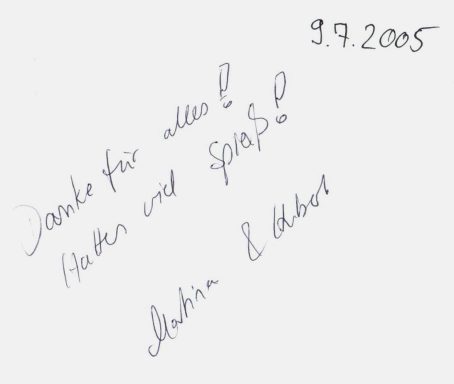 9.7.2005
Danke für alles!
Hatten viel Spaß!
Martina & Hubert